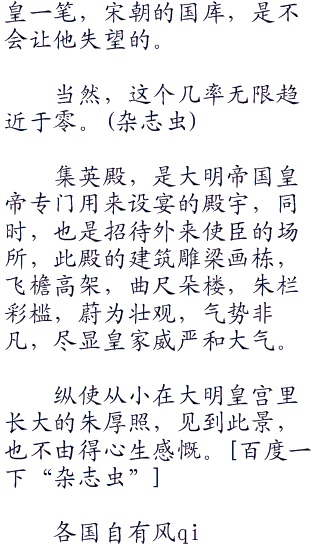 皇一笔，宋朝的国库，是不
会让他失望的。
当然，这个几率无限趋
近于零。(杂志虫)
集英殿，是大明帝国皇
帝专门用来设宴的殿宇，同
时，也是招待外来使臣的场
所，此殿的建筑雕梁画栋，
飞檐高架，曲尺朵楼，朱栏
彩槛，蔚为壮观，气势非
凡，尽显皇家威严和大气。
纵使从小在大明皇宫里
长大的朱厚照，见到此景，
也不由得心生感慨。[百度一
下“杂志虫”]
各国自有风qi